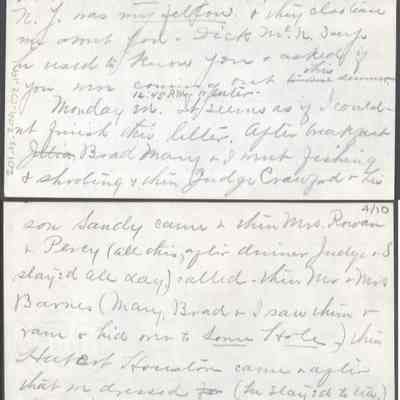 N.Y. was my fellow. & they
me about you. Dick Mc.N. says
he used to know you & asked if
you were coming out this summer
12.40 P.M. or later.
Monday M. It seems as if I could-
nt finish this letter. After breakfast
Brad Mary & I went fishing
& shooting & then Judge Crawford & his
4/10
son Sandy came & then Mrs. Rowan
& Percy (all this, after dinner Judge & S
stayed all day) called. then Mr & Mrs
Barnes (Mary, Brad & I saw them &
ran & hid over to some Hole) then
Houston came & after
that we dressed (he stayed to tea,)